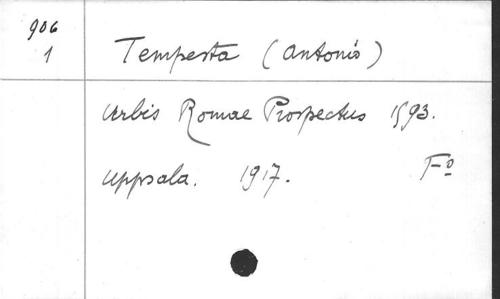 906
1
Tempesta (Antonio)
Urbis Romae Prospectus 1593.
Uppsala. 1917. Fº